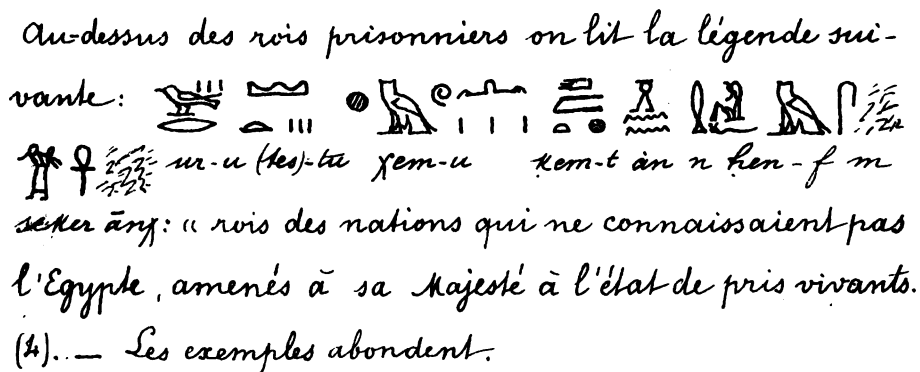 Au-dessus des rois prisonniers on lit la légende sui-
vante :
ur-u (tes)-tu χem-u kem-t àn n hen-f m
seker ānχ : « rois des nations qui ne connaissaient pas
l'Egypte, amenés à sa Majesté à l'état de pris vivants.
(4). — Les exemples abondent.